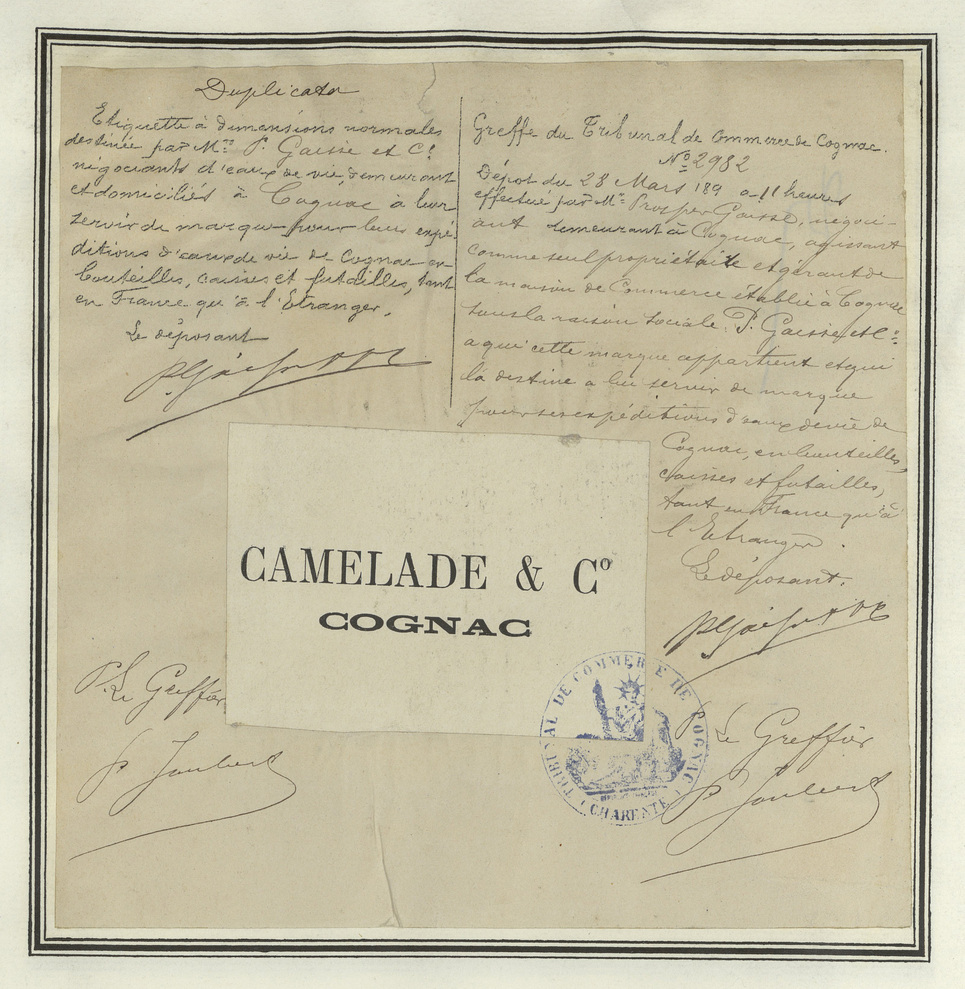 Duplicata
Etiquette à dimensions normales
destinée par Mrs P. Gaisse et Cº
négociants d'eaux de vie, demeurant
et domiciliés à Cognac à leur
servir de marque pour leurs expé-
ditions d'eaux de vie de Cognac en
bouteilles, caisses et futailles, tant
en France qu'à l'Etranger.
Le déposant
Greffe du Tribunal de Commerce de Cognac.
Nº 2982
Dépot du 28 Mars 189 a 11 heures
effectué par Mr Prosper Gaisse, négoci-
ant demeurant à Cognac, agissant
comme seul propriétaire et gérant de
la maison de Commerce établie à Cognac
sous la raison sociale P. Gaisse et Cº
a qui cette marque appartient et qui
la destine a lui servir de marque
pour ses expéditions d'eaux de vie de
Cognac, en bouteilles,
caisses et futailles,
tant en France qu'à
l'Etranger.
Le déposant.
CAMELADE & Cº
COGNAC
P. Le Greffier
P Joubert
TRIBUNAL DE COMMERCE DE COGNAC
(CHARENTE)
P. Le Greffier
P Joubert